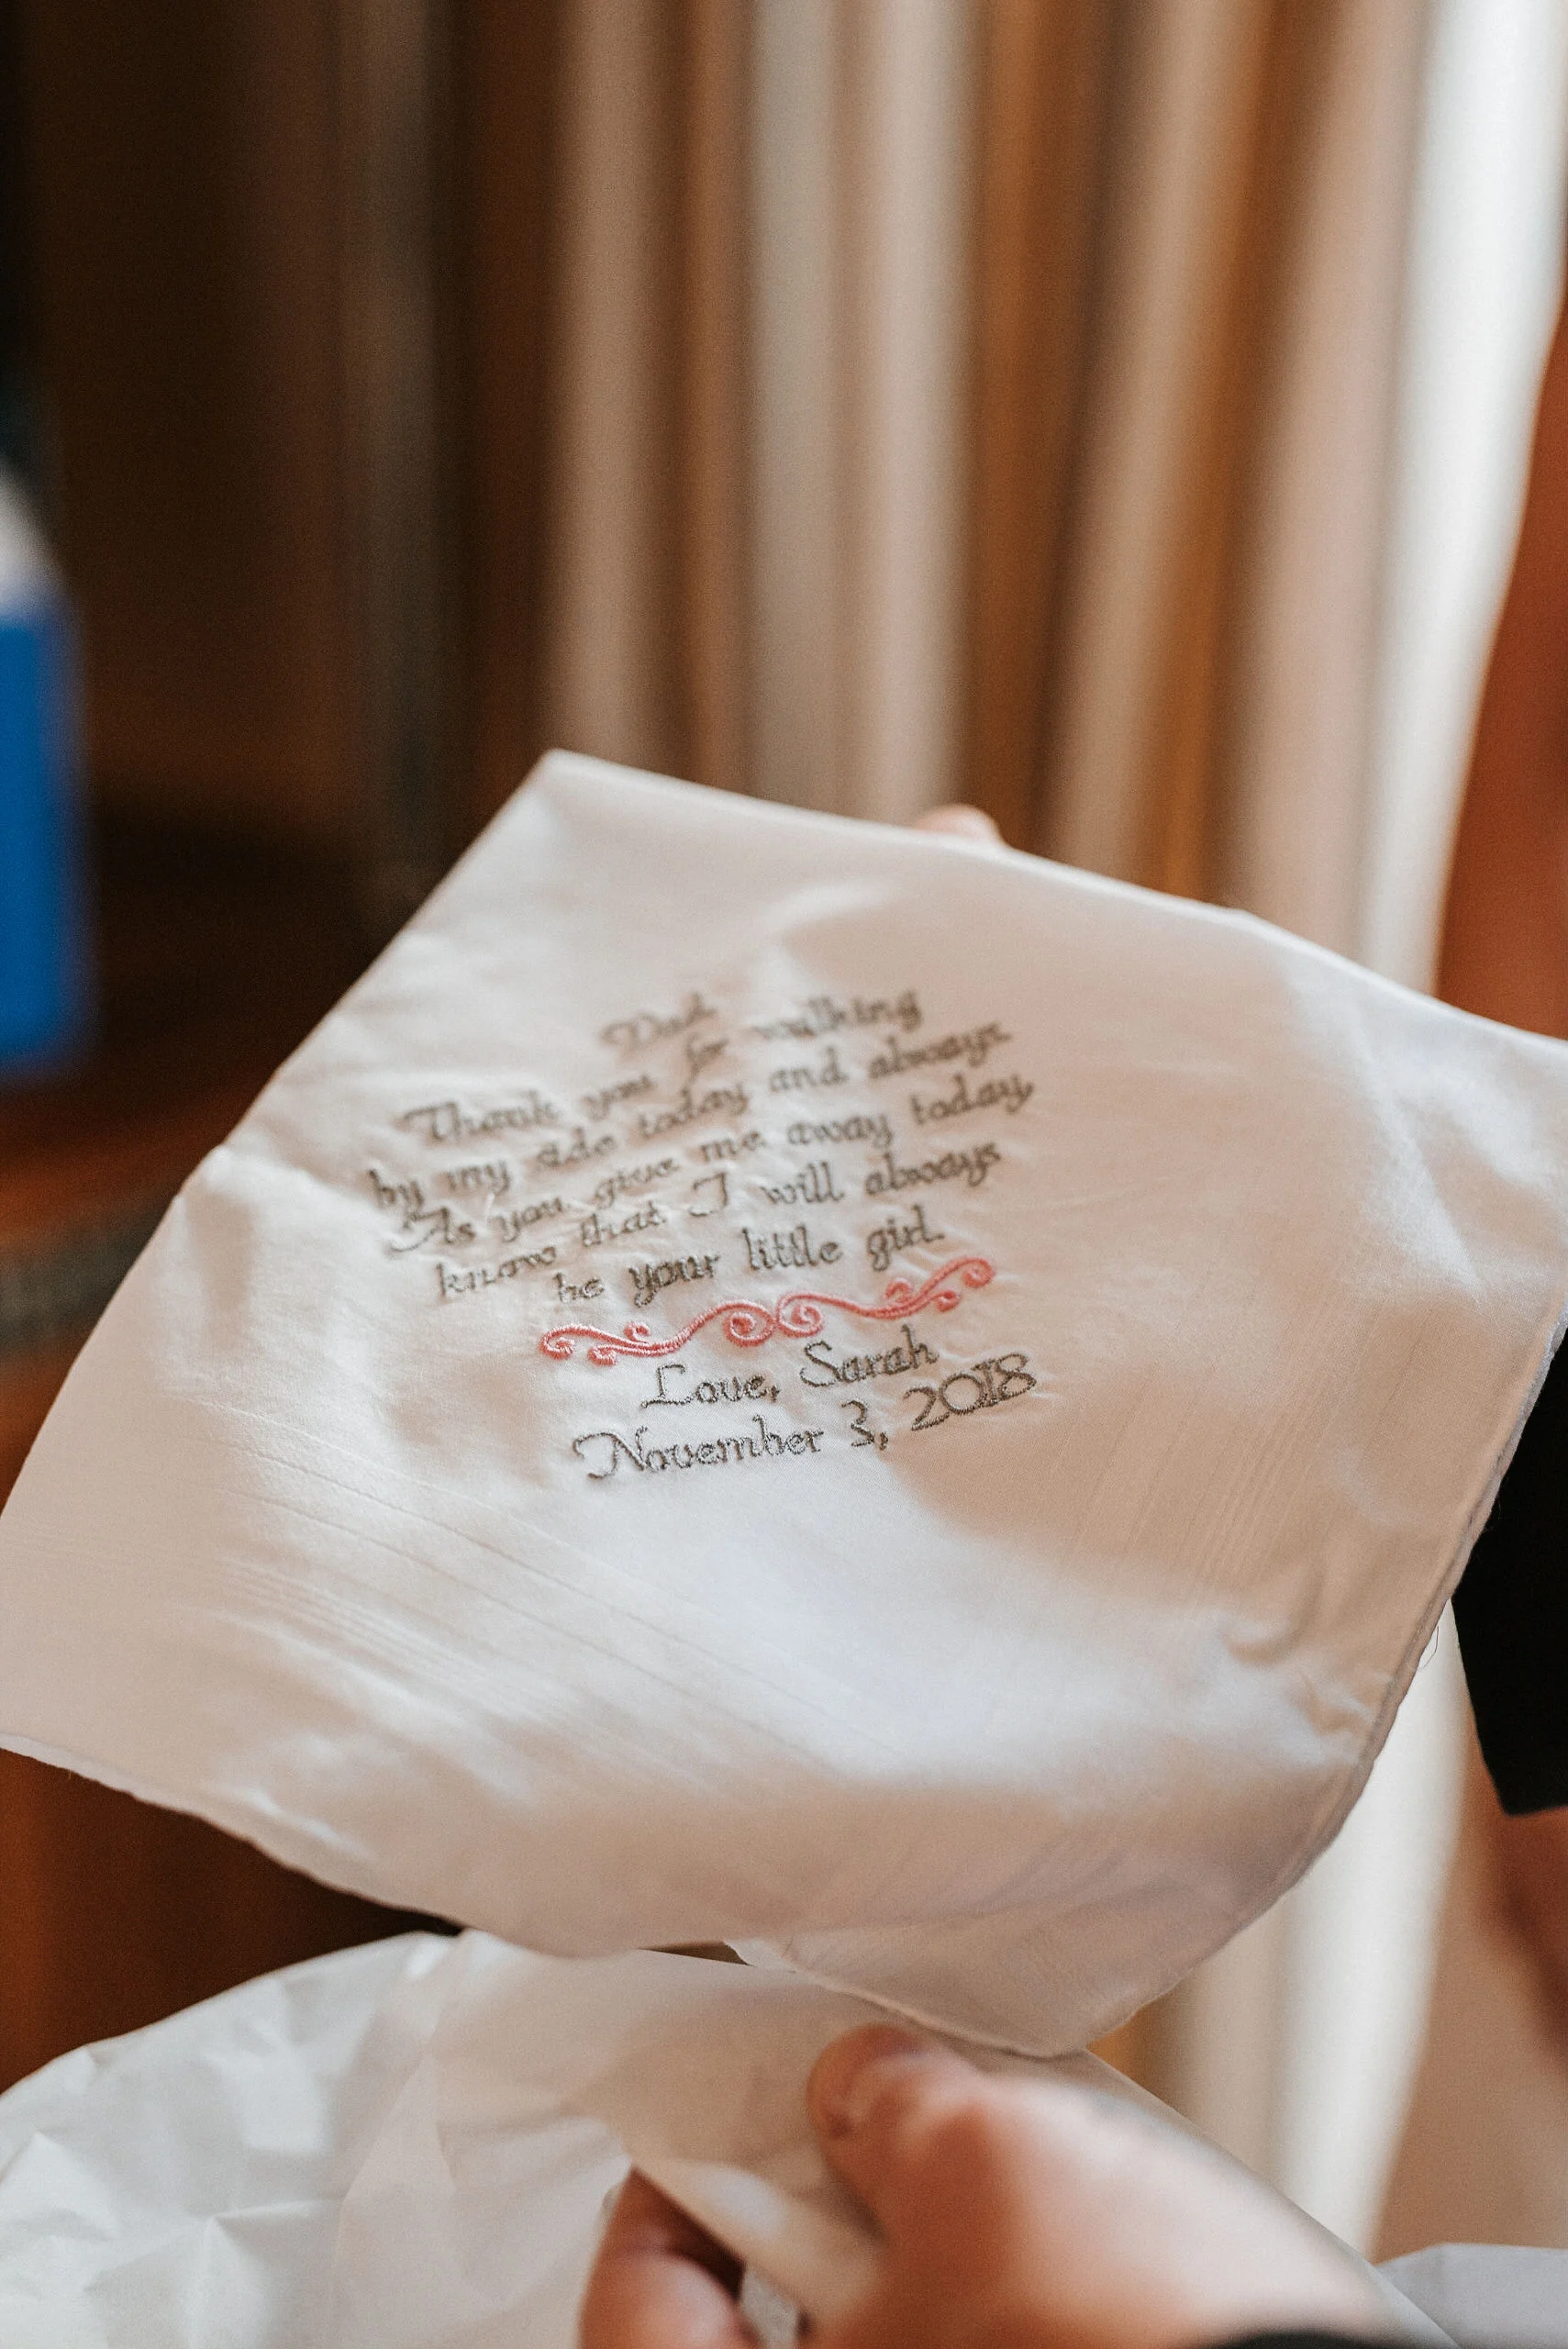 Dad
Thank you for walking
by my side today and always.
As you give me away today,
know that I will always
be your little girl.
Love, Sarah
November 3, 2018